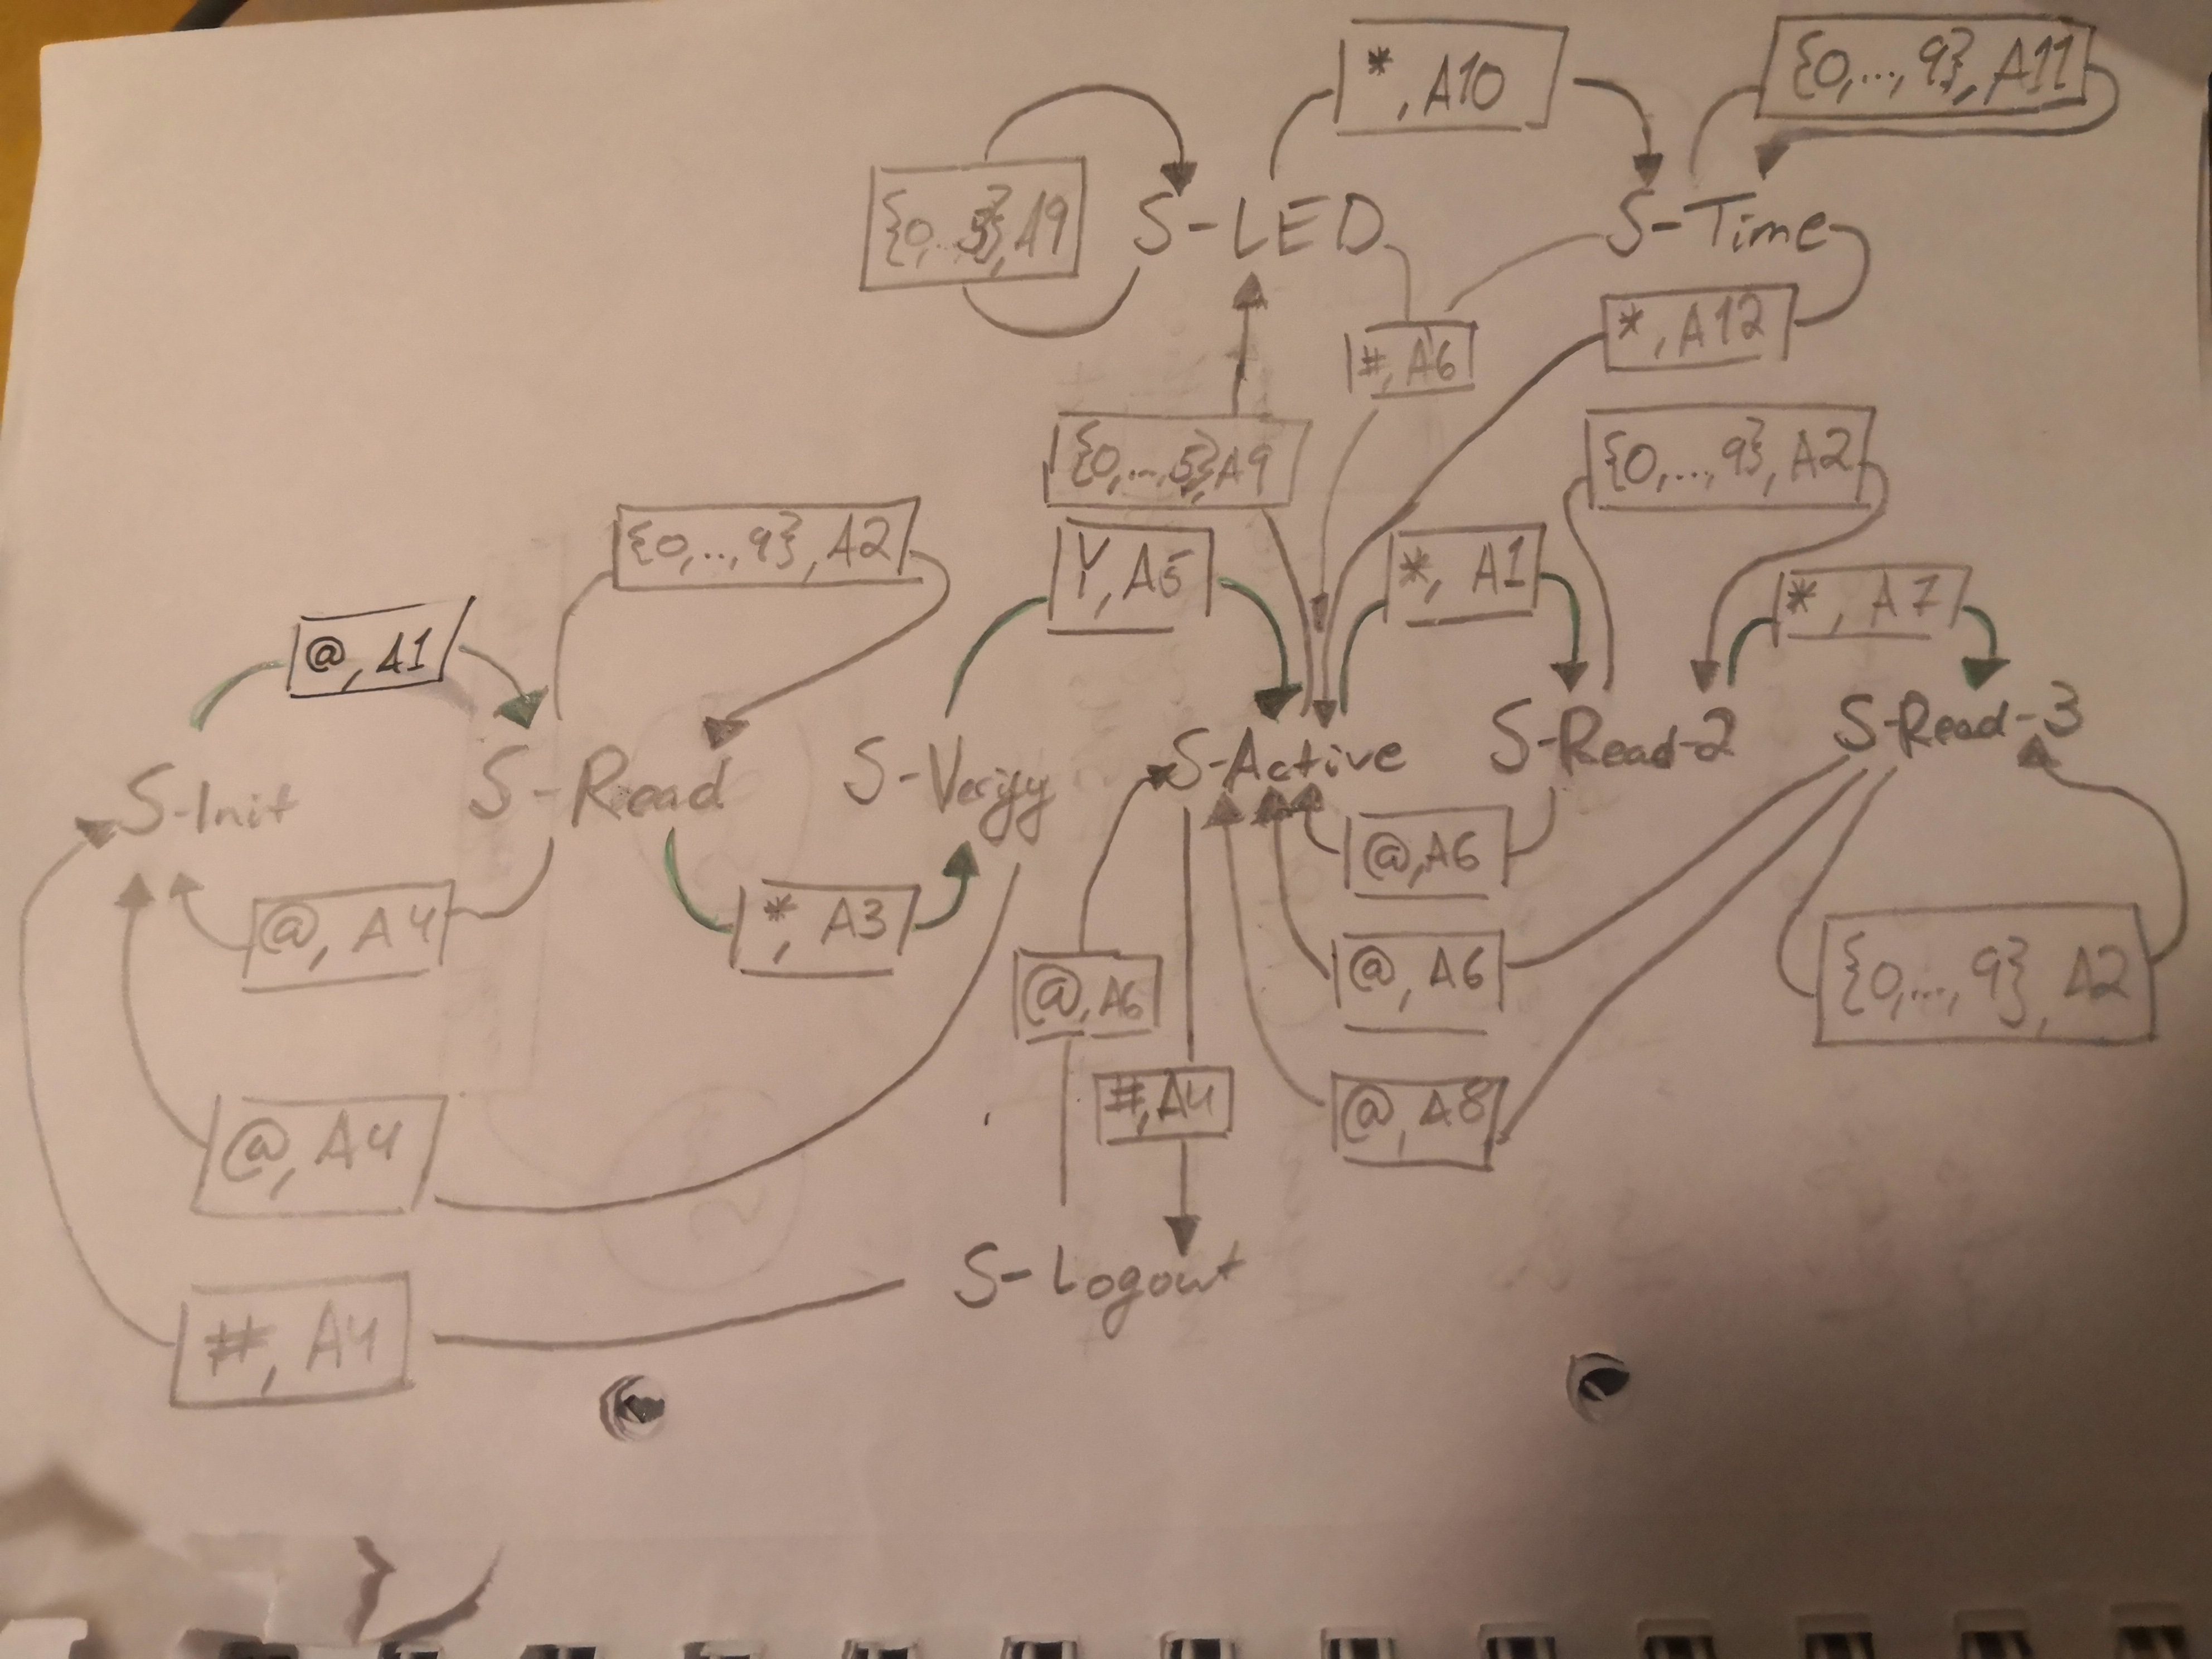 *, A10
{0,..., 9}, A11
{0,..5}, A9
S-LED
S-Time
#, A6
*, A12
{0,...,5}, A9
{0,...,9}, A2
{0,..,9}, A2
Y, A5
*, A1
*, A7
@, A1
S-Init
S-Read
S-Verify
S-Active
S-Read-2
S-Read-3
@, A4
*, A3
@, A6
@, A6
@, A6
{0,..., 9}, A2
@, A4
#, A4
@, A8
S-Logout
#, A4